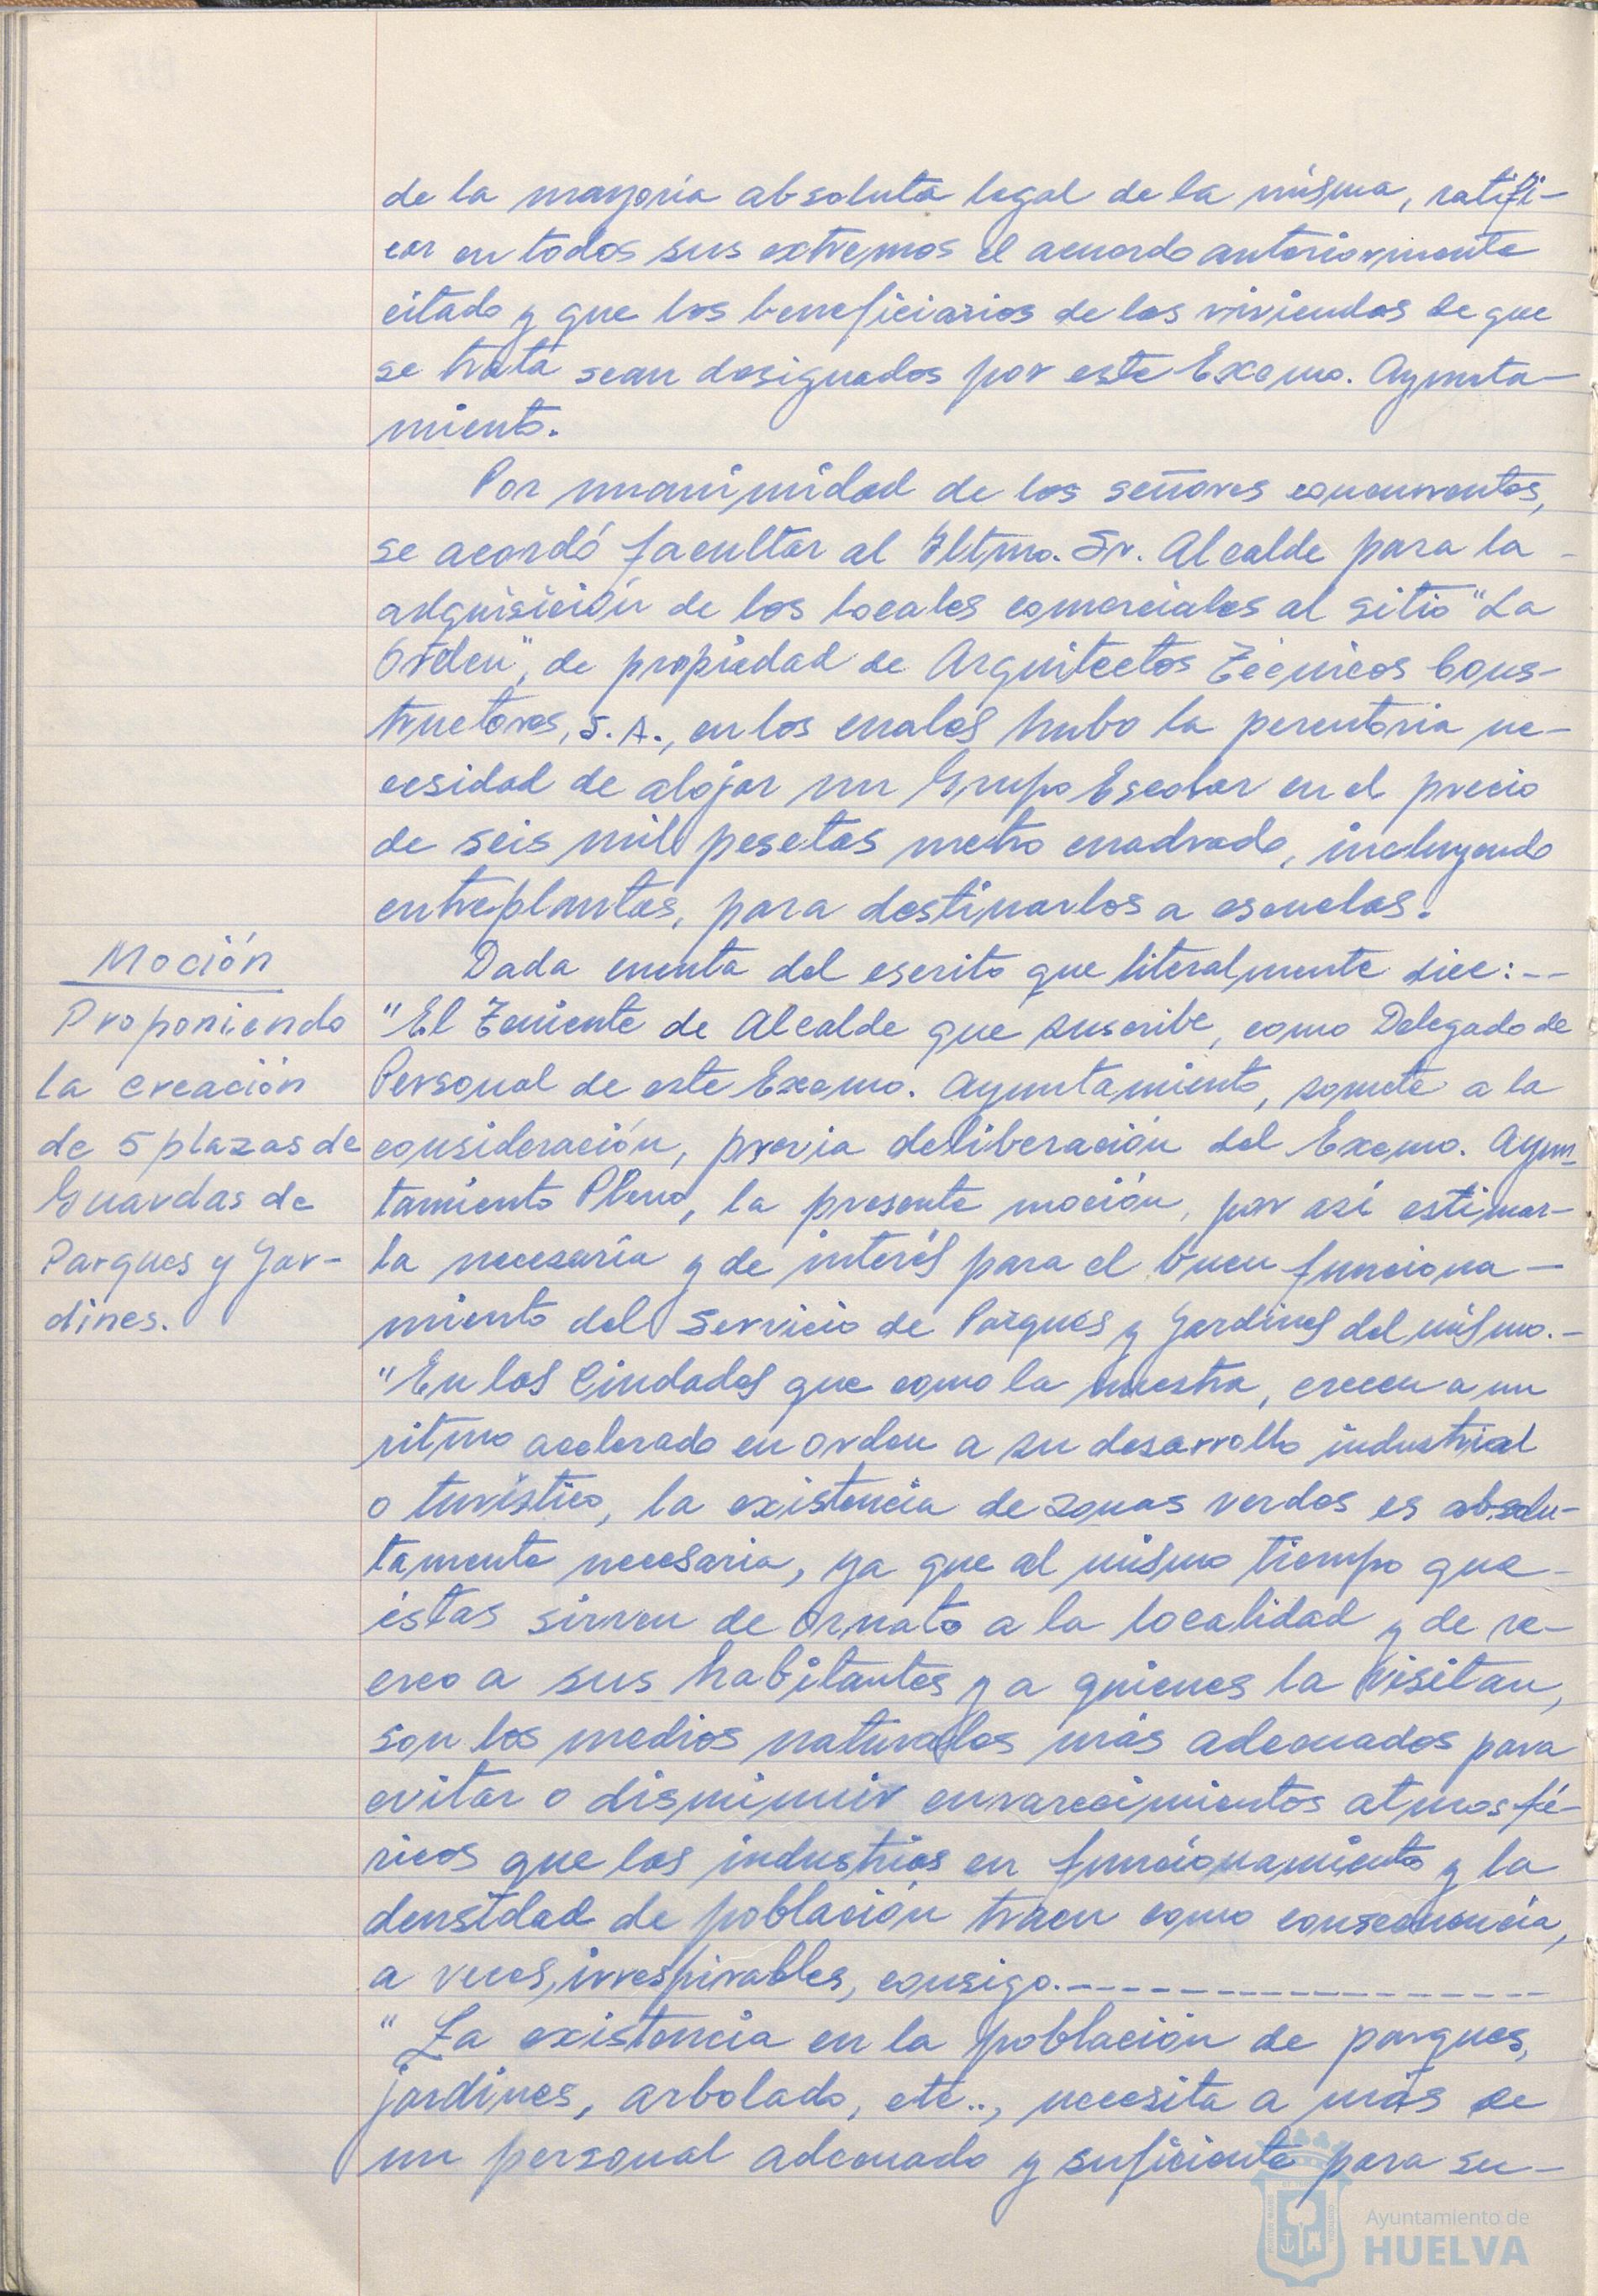 de la mayoria absoluta legal de la misma, ratifi-
car en todos sus extremos el acuerdo anteriormente
citado y que los beneficiarios de las viviendas de que
se trata sean designados por este Excmo. Ayunta-
miento.
Por unanimidad de los señores concurrentes,
se acordó facultar al Iltmo. Sr. Alcalde para la -
adquisición de los locales comerciales al sitio "La
Orden", de propiedad de Arquitectos Técnicos Cons-
tructores, S.A., en los cuales hubo la perentoria ne-
cesidad de alojar un Grupo Escolar en el precio
de seis mil pesetas metro cuadrado, incluyendo
entreplantas, para destinarlos a escuelas.
Moción
Proponiendo
la creación
de 5 plazas de
Guardas de
Parques y Jar-
dines.
Dada cuenta del escrito que literalmente dice: --
"El Teniente de Alcalde que suscribe, como Delegado de
Personal de este Excmo. Ayuntamiento, somete a la
consideración, previa deliberación del Excmo. Ayun-
tamiento Pleno, la presente moción, por así estimar-
la necesaria y de interés para el buen funciona-
miento del Servicio de Parques y Jardines del mismo. -
"En las Ciudades que como la nuestra, crecen a un
ritmo acelerado en orden a su desarrollo industrial
o turístico, la existencia de zonas verdes es absolu-
tamente necesaria, ya que al mismo tiempo que -
éstas sirven de ornato a la localidad y de re-
creo a sus habitantes y a quienes la visitan,
son los medios naturales más adecuados para
evitar o disminuir enrarecimientos atmosfé-
ricos que las industrias en funcionamiento y la
densidad de población traen como consecuencia,
a veces, irrespirables, consigo. -----------------
"La existencia en la población de parques,
jardines, arbolado, etc.., necesita a más de
un personal adecuado y suficiente para su-
Ayuntamiento de
HUELVA